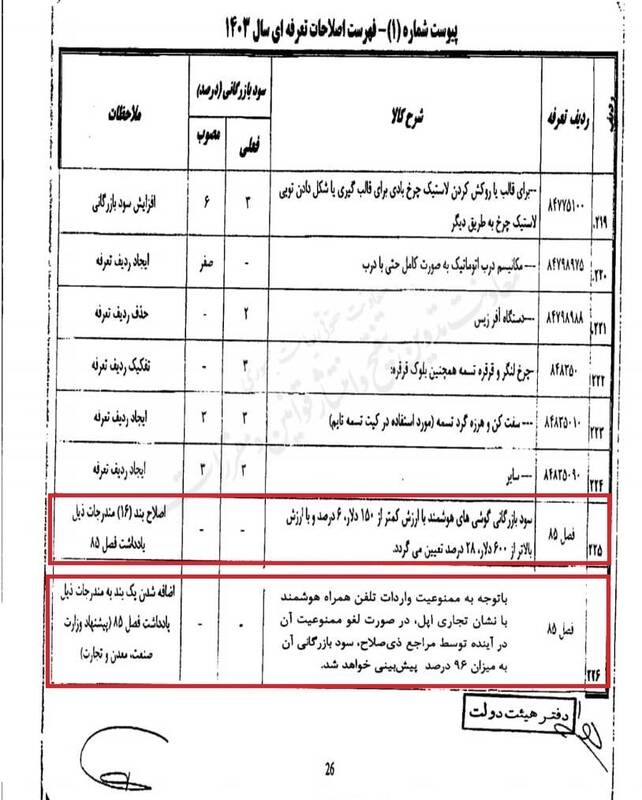 پیوست شماره (۱)- فهرست اصلاحات تعرفه ای سال ۱۴۰۳
ردیف
ردیف تعرفه
شرح کالا
سود بازرگانی (درصد)
فعلی
مصوب
ملاحظات
۲۱۹.
۸۴۷۷۵۱۰۰
---برای قالب یا روکش کردن لاستیک چرخ بادی برای قالب گیری یا شکل دادن تویی
لاستیک چرخ به طریق دیگر
۳
۶
افزایش سود بازرگانی
۲۲۰.
۸۴۷۹۸۹۷۵
---- مکانیسم درب اتوماتیک به صورت کامل حتی با درب
-
صفر
ایجاد ردیف تعرفه
۲۲۱.
۸۴۷۹۸۹۸۸
----دستگاه آفر زیس
۲
-
حذف ردیف تعرفه
۲۲۲
۸۴۸۳۵۰
-چرخ لنگر و قرقره تسمه همچنین بلوک قرقره:
۳
-
تفکیک ردیف تعرفه
۲۲۳
۸۴۸۳۵۰۱۰
--- سفت کن و هرزه گرد تسمه (مورد استفاده در کیت تسمه تایم)
۳
۳
ایجاد ردیف تعرفه
۲۲۴
۸۴۸۳۵۰۹۰
--- سایر
۳
۳
ایجاد ردیف تعرفه
۲۲۵
فصل ۸۵
سود بازرگانی گوشی های هوشمند با ارزش کمتر از ۱۵۰ دلار، ۶ درصد و با ارزش
بالاتر از ۶۰۰ دلار، ۲۸ درصد تعیین می گردد.
-
-
اصلاح بند (۱۶) مندرجات ذیل
یادداشت فصل ۸۵
۲۲۶
فصل ۸۵
باتوجه به ممنوعیت واردات تلفن همراه هوشمند
با نشان تجاری اپل، در صورت لغو ممنوعیت آن
در آینده توسط مراجع ذی‌صلاح، سود بازرگانی آن
به میزان ۹۶ درصد پیش‌بینی خواهد شد.
-
-
اضافه شدن یک بند به مندرجات ذیل
یادداشت فصل ۸۵ (پیشنهاد وزارت
صنعت، معدن و تجارت)
دفتر هیئت دولت
26